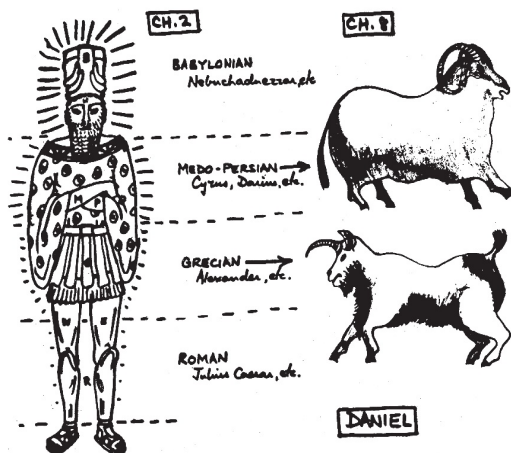 CH. 2
CH. 8
BABYLONIAN
Nebuchadnezzar, etc
MEDO-PERSIAN
Cyrus, Darius, etc.
GRECIAN
Alexander, etc.
ROMAN
Julius Caesar, etc.
DANIEL